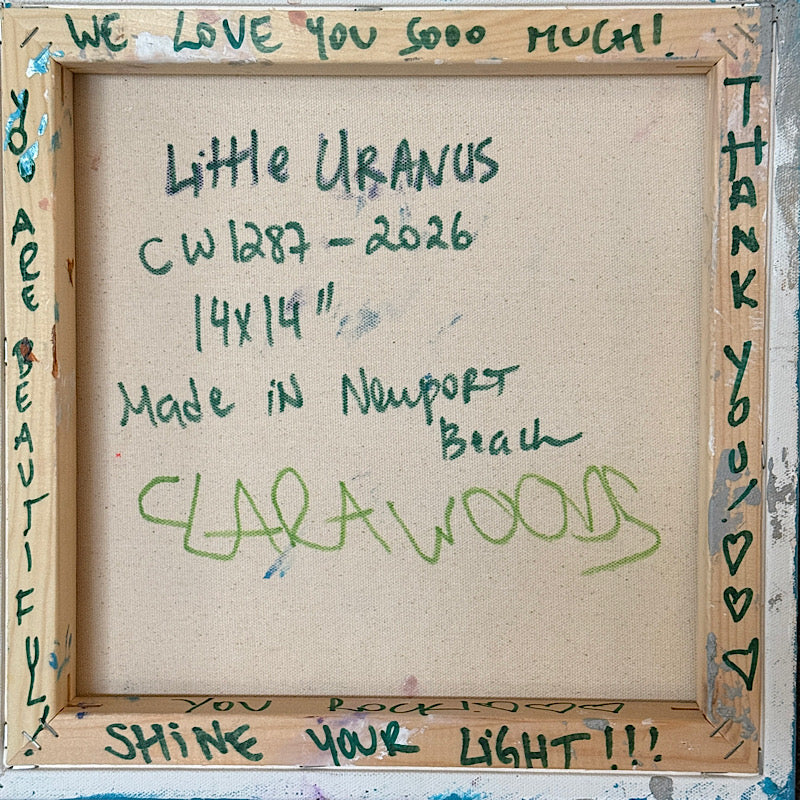 WE LOVE YOU SOOO MUCH!
YOU ARE BEAUTIFUL!
Little URANUS
CW1287-2026
14x14"
Made iN Newport
Beach
CLARA WOODS
THANK YOU! ♡♡♡
YOU ROCK!♡♡♡
SHiNE YOUR LiGHT!!!